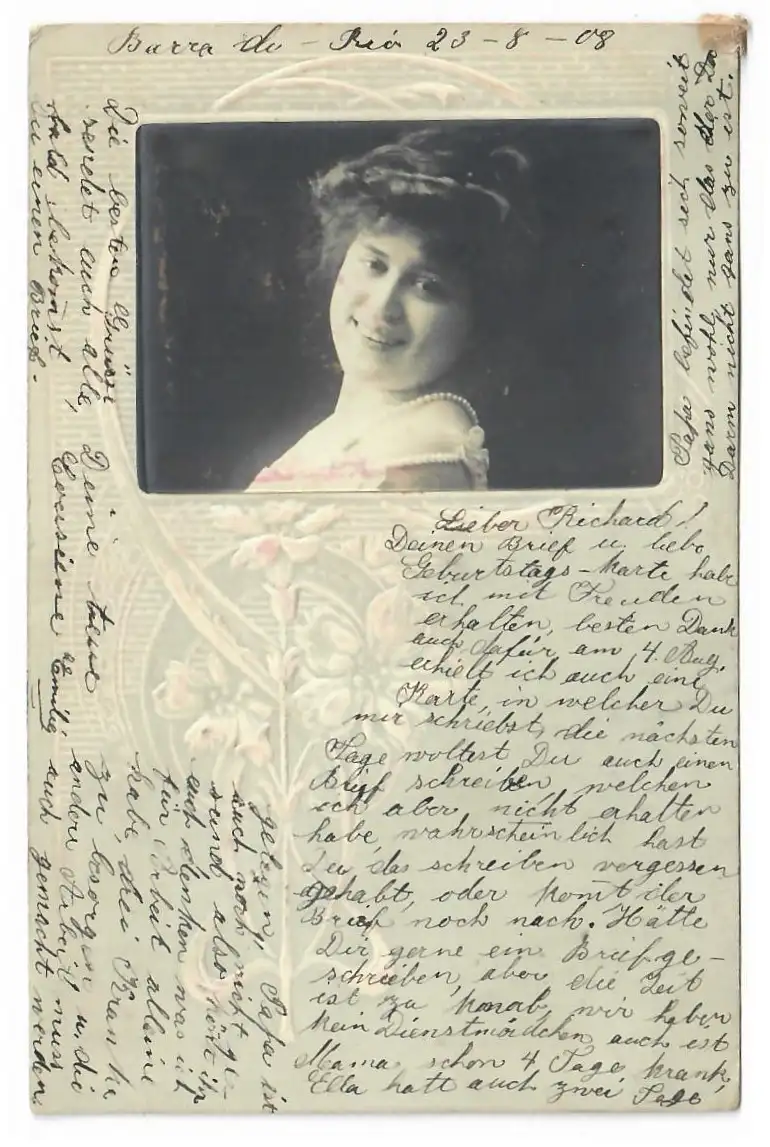 Barra do - Rió 23 - 8 - 08
Lieber Richard!
Deinen Brief u. liebe
Geburtstags-Karte habe
ich mit Freuden
erhalten, besten Dank
auch dafür, am 4. Aug.
erhielt ich auch eine
Karte, in welcher Du
mir schriebst, die nächsten
Tage woltest Du auch einen
Brief schreiben, welchen
ich aber nicht erhalten
habe, wahrscheinlich hast
Du das schreiben vergessen
gehabt, oder komt der
Brief noch nach. Hätte
Dir gerne ein Brief ge-
schrieben, aber die Zeit
ist zu knapb, wir haben
kein Dienstmädchen auch ist
Mama schon 4 Tage krank,
Ella hatt auch zwei Tage
gelegen, Papa ist
auch noch nicht ge-
sund also könt ihr
euch denken was ich
für Arbeit alleine
habe, drei Kranke
zu besorgen u. die
andere Arbeit muss
auch gemacht werden.
Papa befindet sich soweit
ganz wohl nur das der
Darm nicht ganz zu ist.
Die besten Grüsse
sendet euch alle,
Deine treue
Cousine Emilie
bald bekomst
Du einen Brief.